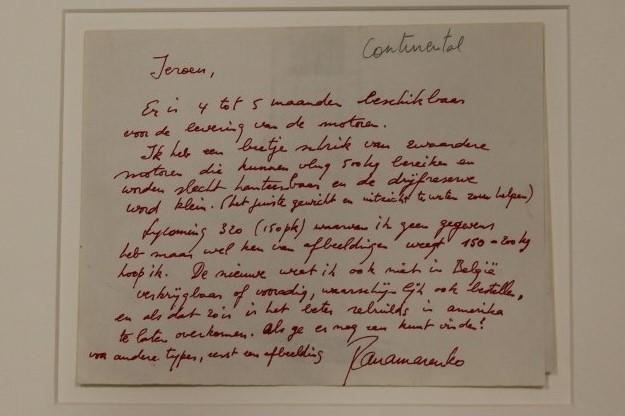 Continental
Jeroen,
Er is 4 tot 5 maanden beschikbaar
voor de levering van de motoren.
Ik heb een beetje schrik van zwaardere
motoren die kunnen vlug 500kg bereiken en
worden slecht hanteerbaar en de drijfreserve
word klein. (het juiste gewicht en uitzicht te weten zou helpen)
Lycoming 320 (150pk) waarvan ik geen gegevens
heb maar wel ken van afbeeldingen weegt 150-200kg
hoop ik. De nieuwe weet ik ook niet in België
verkrijgbaar of voorradig, waarschijnlijk ook bestellen,
en als dat zo is is het beter rebuilds in amerika
te laten overkomen. Als ge er nog een kunt vinden!
voor andere types, eerst een afbeelding
Panamarenko